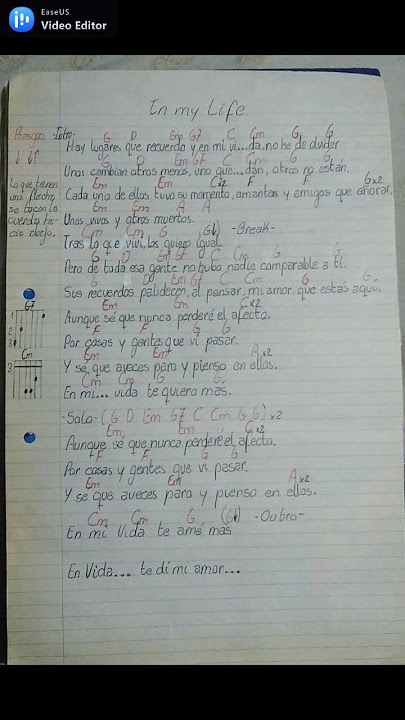 EaseUS
Video Editor
In my Life.
Rasgeo -Intro-
G D Em G7 C Cm G G
Hay lugares que recuerdo y en mi vi...da no he de dudar
G D Em G7 C Cm G G
Unos cambian otros menos, uno que...dan, otros no están.
Em Em C×2 F F G×2
Cada uno de ellos tuvo su momento, amantes y amigos que añorar.
Em Em A A
Unos vivos y otros muertos.
Lo que tienen
una flecha
se tocan la
cuerda ha-
cia abajo.
Cm Cm G (G↓) -Break-
Tras lo que viví, los quiero igual.
G D Em G7 C Cm G G
Pero de toda esa gente no hubo, nadie comparable a ti.
G D Em G7 C Cm G G
Sus recuerdos palidecen, al pensar, mi amor, que estas aquí.
Em Em C×2
Aunque sé que nunca perderé el afecto.
F F G G
Por cosas y gentes que vi pasar.
Em Em A×2
Y se que aveces paro y pienso en ellos.
Cm Cm G G
En mi... vida te quiero mas.
G7
1
2
3
Cm
3
-Solo- (G D Em G7 C Cm G G)×2
Em Em C×2
Aunque sé que nunca perderé el afecto.
F F G G
Por cosas y gentes que vi pasar.
Em Em A×2
Y se que aveces paro y pienso en ellos.
Cm Cm G (G↓) -Outro-
En mi Vida te amé mas
En Vida... te di mi amor...